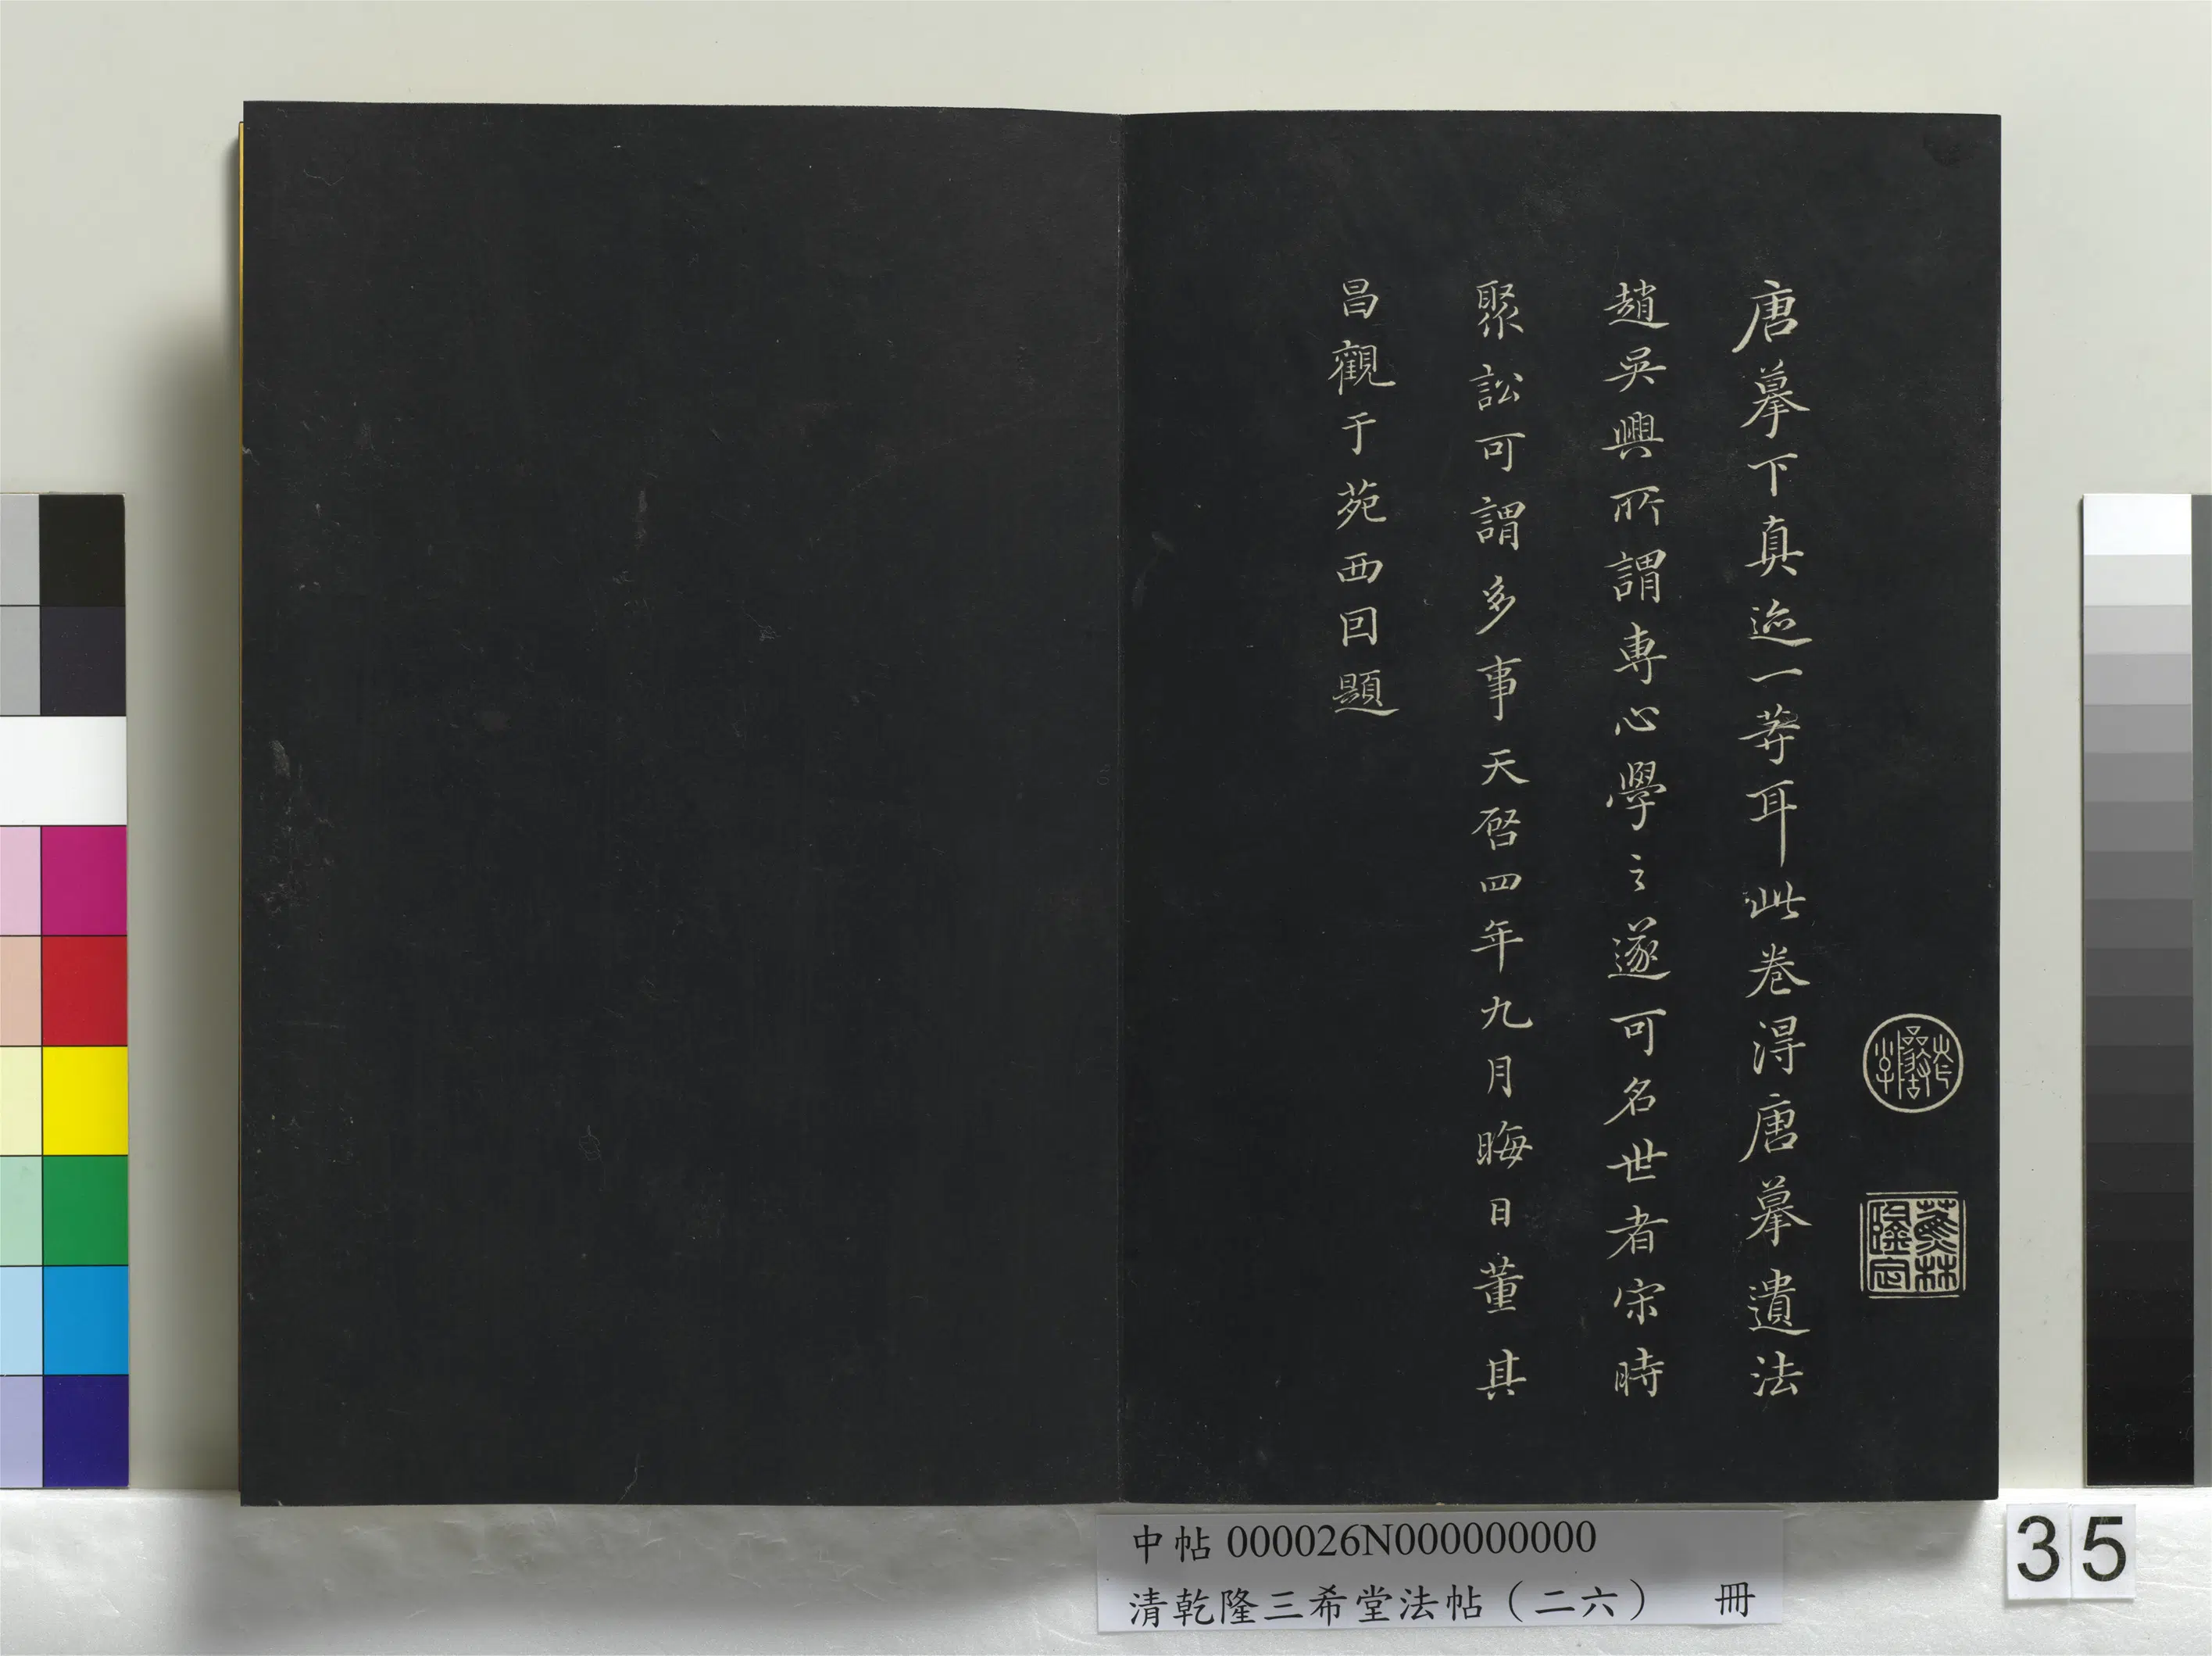 唐摹下真迹一等耳此卷得唐摹遺法
趙吳興所謂専心學之遂可名世者宋時
聚訟可謂多事天啓四年九月晦日董其
昌觀于苑西回題
蕉林
隆定
中帖 000026N000000000
清乾隆三希堂法帖（二六） 冊
35